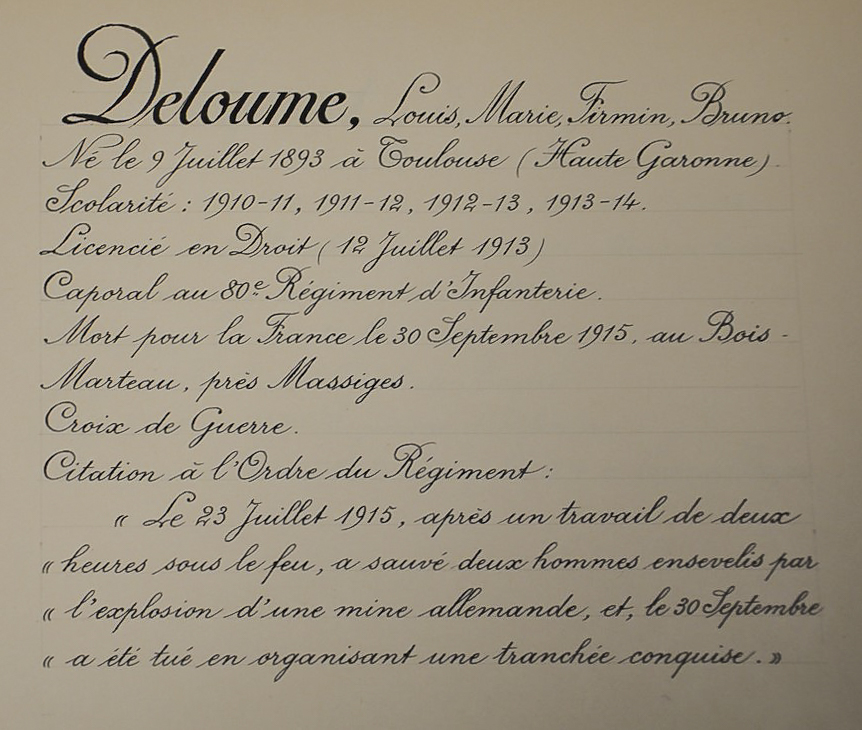 Deloume, Louis, Marie, Firmin, Bruno.
Né le 9 Juillet 1893 à Toulouse (Haute Garonne).
Scolarité : 1910-11, 1911-12, 1912-13, 1913-14.
Licencié en Droit (12 Juillet 1913)
Caporal au 80e Régiment d'Infanterie.
Mort pour la France le 30 Septembre 1915, au Bois-
Marteau, près Massiges.
Croix de Guerre.
Citation à l'Ordre du Régiment :
« Le 23 Juillet 1915, après un travail de deux
« heures sous le feu, a sauvé deux hommes ensevelis par
« l'explosion d'une mine allemande, et, le 30 Septembre
« a été tué en organisant une tranchée conquise. »